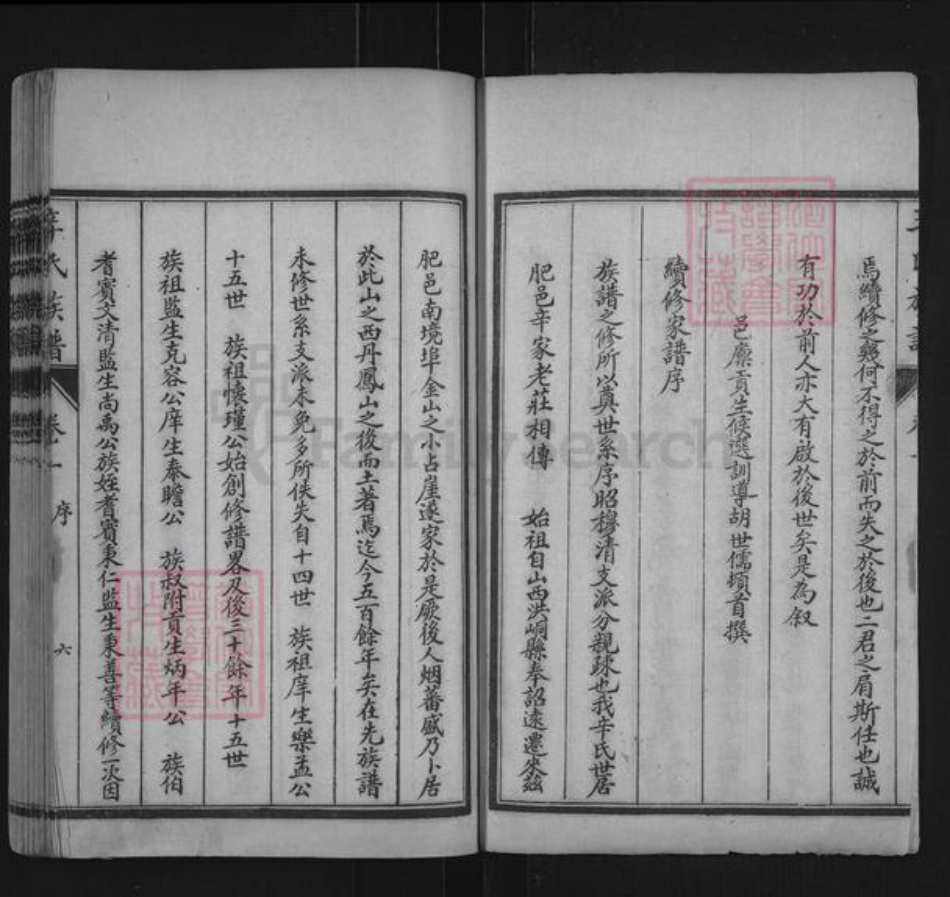 焉續修之幾何不得之於前而失之於後也二君之肩斯任也誠
有功於前人亦大有啟於後世矣是為叙
邑廪貢生候選訓導胡世儒頓首撰
續修家譜序
族譜之修所以奠世系序昭穆清支派分親疎也我辛氏世居
肥邑辛家老莊相傳 始祖自山西洪峒縣奉詔遠遷來兹
肥邑南境埠金山之小占崖遂家於是厥後人烟蕃盛乃卜居
於此山之西丹鳳山之後而土著焉迄今五百餘年矣在先族譜
未修世系支派未免多所佚失自十四世 族祖庠生樂孟公
十五世 族祖懷瑾公始創修譜畧及後三十餘年十五世
族祖監生克容公庠生奉瞻公 族叔附貢生炳年公 族伯
耆賓文清監生尚禹公族姪耆賓東仁監生東善等續修一次因
辛氏族譜 卷一 序 六
FamilySearch